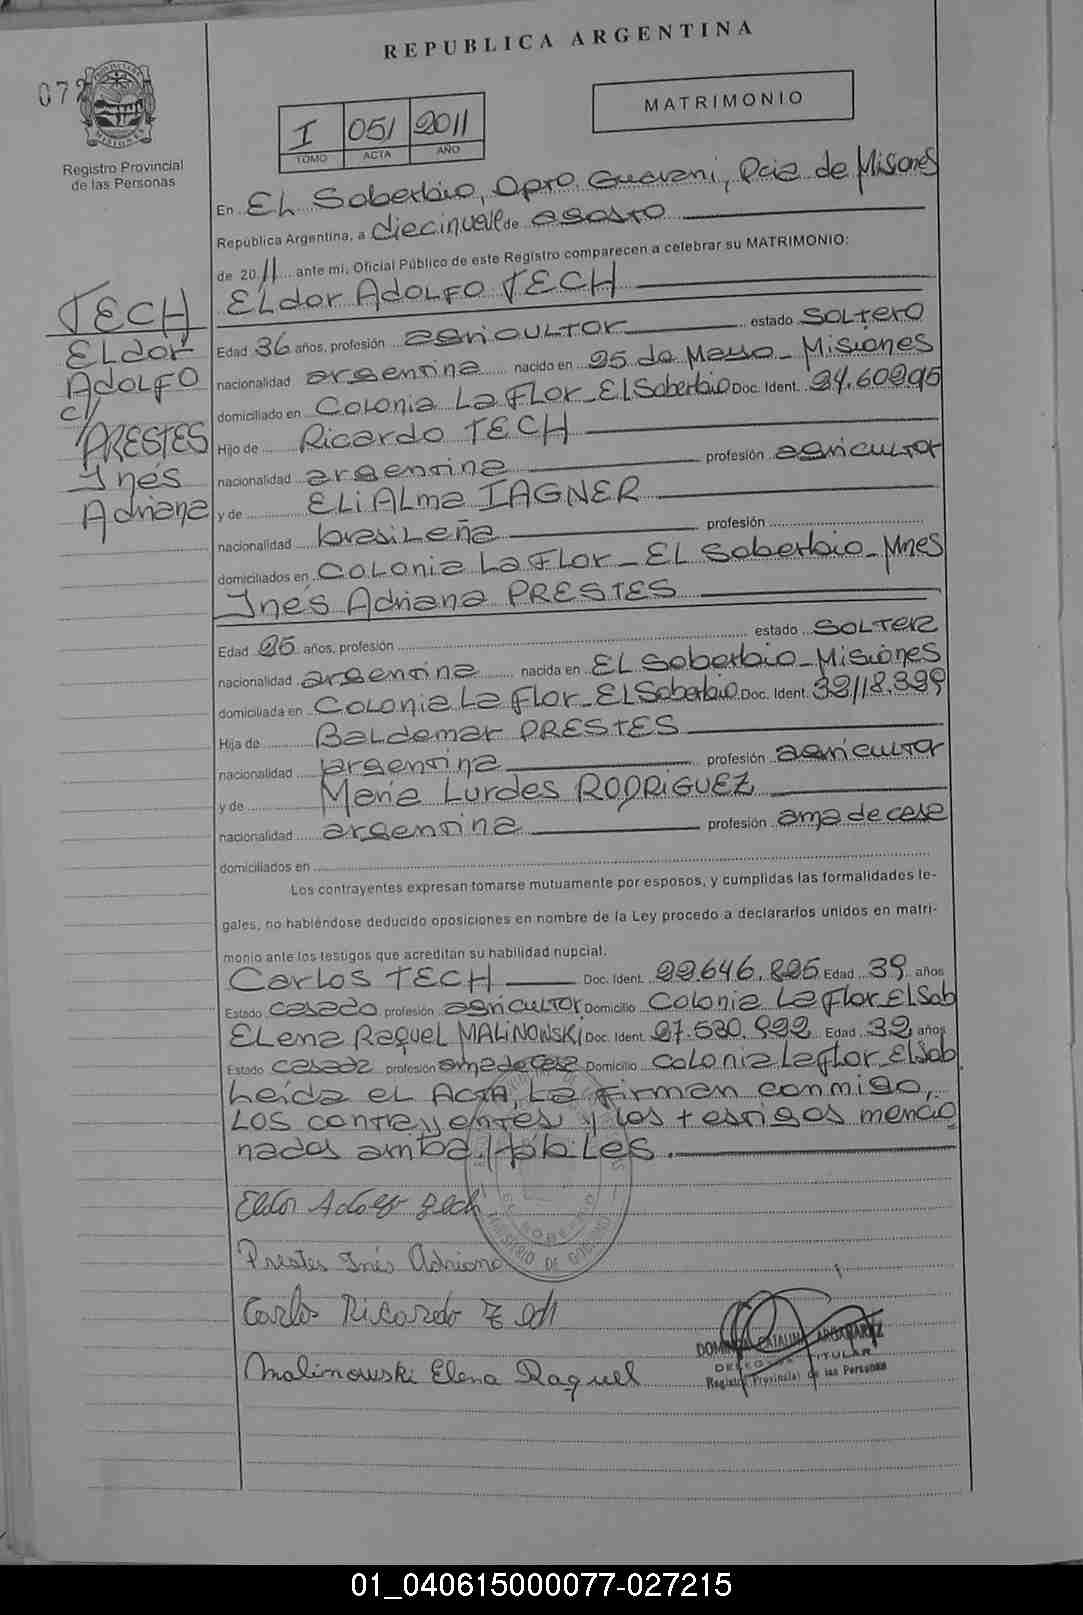 REPUBLICA ARGENTINA
072
MATRIMONIO
I 051 2011
TOMO ACTA AÑO
Registro Provincial
de las Personas
En EL Soberbio, Dpto. Guarani, Pcia de Misiones
República Argentina, a diecinueve de agosto
de 2011 ante mi, Oficial Público de este Registro comparecen a celebrar su MATRIMONIO:
ELdor ADOLFO TECH
TECH
ELdor
ADOLFO
c/
PRESTES
Inés
Adriana
Edad 36 años, profesión agricULTOR estado SOLTERO
nacionalidad argentina nacido en 25 de Mayo - Misiones
domiciliado en Colonia La FLOR - EL Soberbio Doc. Ident. 24.60295
Hijo de Ricardo TECH
nacionalidad argentina profesión agricULTOR
y de ELi ALma IAGNER
nacionalidad brasiLeña profesión
domiciliados en COLOnia La FLor - EL Soberbio - Mnes
Inés Adriana PRESTES
Edad 25 años, profesión estado SOLTERa
nacionalidad argentina nacida en EL Soberbio - Misiones
domiciliada en Colonia La FLor - EL Soberbio Doc. Ident. 32118.399
Hija de BaLdemar PRESTES
nacionalidad argentina profesión agricuLTOr
y de María Lurdes RODRIGUEZ
nacionalidad argentina profesión ama de casa
domiciliados en
Los contrayentes expresan tomarse mutuamente por esposos, y cumplidas las formalidades le-
gales, no habiéndose deducido oposiciones en nombre de la Ley procedo a declararlos unidos en matri-
monio ante los testigos que acreditan su habilidad nupcial.
Carlos TECH Doc. Ident. 22.646.825 Edad 39 años
Estado casado profesión agricULTOR Domicilio Colonia La FLor EL Sob
ELena Raquel MALINOWSKI Doc. Ident. 27.530.992 Edad 32 años
Estado casada profesión ama de casa Domicilio Colonia La FLor EL Sob
Leída eL ACTA, La Firman conmigo,
LOS contrayentes y los testigos mencio
nados amba, HábiLes.
Eldor Adolfo Zech
Prestes Inés Adriana
Carlos Ricardo Zech
Malinowski Elena Raquel
DELEGADA TITULAR
Registro Provincial de las Personas
MINISTERIO DE GOBIERNO
01_040615000077-027215